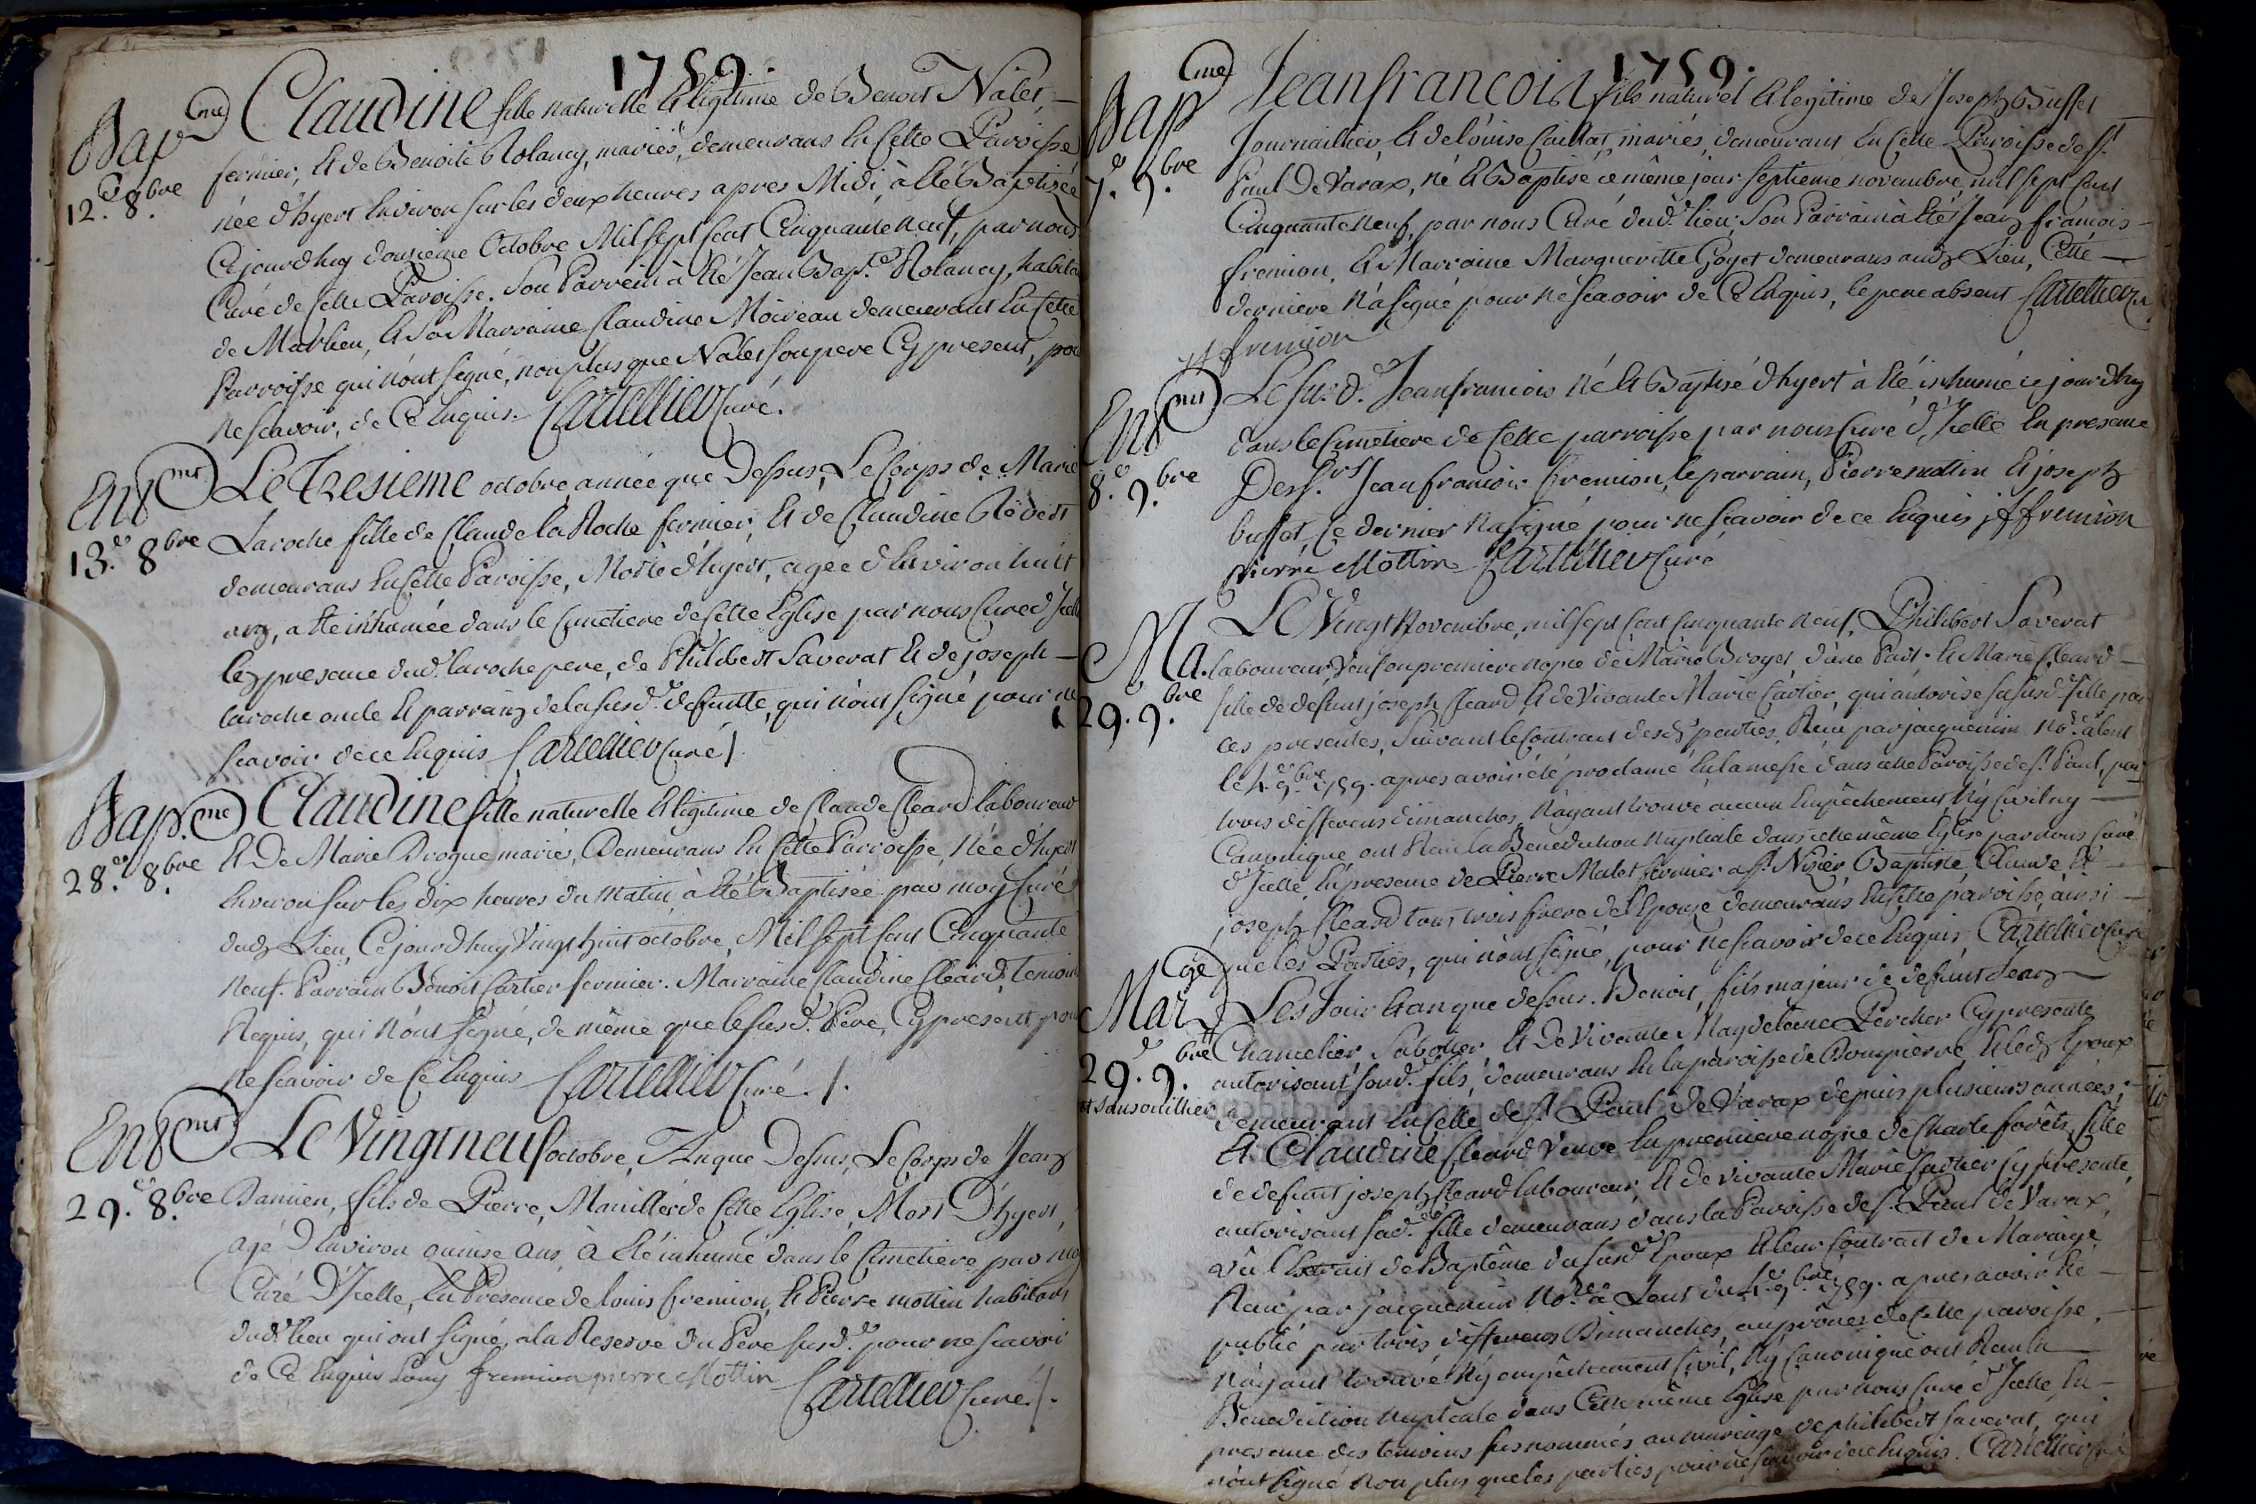 1759.
Bap.me Claudine fille naturelle & légitime de Benoit Nalet,
12.e 8.bre fermier, & de Benoite Rolancy, mariés, demeurans En Cette Paroisse
née d'hyert Environ sur les deux heures apres Midi, à été Baptisée
Cejourdhuy douzieme Octobre Mil sept cent Cinquante neuf, par nous
Curé de Cette Paroisse. Son Parrein à été Jean Bap.te Rolancy, habitant
de Marlieu, & Sa Marraine Claudine Moireau demeurant En Cette
Parroisse qui n'ont signé, non plus que Nalet son pere Cy present, pour
ne scavoir, de Ce Enquis. Cartellier Curé.
Ent.mt Le Tresieme octobre, année que Dessus, Le Corps de Marie
13.e 8.bre Laroche fille de Claude la Roche fermier, & de Claudine
demeurans En Cette Paroisse, Morte d'hyert, agée d'Environ huit
ans, a été inhumée dans le Cimetiere de Cette Eglise par nous Curé d'Icelle
En presence dud. laroche pere, de Philibert Saverat & de joseph
laroche oncle & parrain de la susd.e defuntte, qui n'ont signé pour ne
scavoir de ce Enquis Cartellier Curé
Bap.me Claudine fille naturelle & légitime de Claude Cleard laboureur
28.e 8.bre & De Marie Brogue mariés, Demeurans En Cette Parroisse, Née d'hyert
Environ sur les dix heures du matin, à été Baptisée par moy Curé
dud. Lieu, Cejourd'huy Vingt huit octobre, Mil sept cent Cinquante
neuf. Parrain Benoit Cartier fermier. Marraine Claudine Cleard, temoins
Requis, qui n'ont signé, de même que le susd. Pere, Cy present pour
ne scavoir de Ce Enquis Cartellier Curé.
Ent.mt Le Vingt neuf octobre, An que Dessus, Le Corps de Jean
29.e 8.bre Damien, fils de Pierre, Manillier de Cette Eglise, Mort D'hyert,
agé D'Environ quinse ans, à été inhumé dans le Cimetiere par moy
Curé D'Icelle, En Présence de louis fremion, & Pierre mottin habitans
dud. lieu qui ont signé, a la Reserve du Pere susd. pour ne scavoir
de Ce Enquis Louy fremion pierre Mottin
Cartellier Curé.
1759.
Bap.me Jeanfrancois fils naturel & legitime de Joseph Buffet
Journaillier, & de lóuise Caillat, mariés, demeurant En Cette Paroisse de S.t
7.e 9.bre Paul De Varax, né & Baptisé ce même jour septieme novembre mil sept cent
Cinquante Neuf, par nous Curé dud. lieu; Son Parrain à été Jean françois
fremion, & Marraine Margueritte Goyet demeurans aud. Lieu, Cette
derniere n'a signé pour ne scavoir de Ce Enquis, le pere absent Cartellier Curé
jf fremion
Ent.mt Le sus.d. Jeanfrancois Né & Baptisé d'hyert à été inhumé ce jourdhuy
dans le Cimetiere de Cette parroisse par nous Curé d'Icelle En presence
8.e 9.bre Des S.rs Jean francois fremion, le parrain, Pierre mottin & joseph
buffet, Ce dernier n'a signé pour ne scavoir de ce Enquis jf fremion
pierre Mottin Cartellier Curé
Le Vingt Novembre, mil sept cent cinquante neuf, Philibert Saverat
Ma. laboureur, Veuf en premiere nopce de Marie Broyet, d'une Part & Marie Cleard
29. 9.bre fille de defunt joseph Cleard, & de Vivante Marie Cartier, qui autorise sa susd. fille pour
ces presentes, Suivant le Contract desd. parties, Recu par jacquemin No.re a lent
le 4.e 9.bre 1759. apres avoir été proclamé En la messe dans cette Paroisse de S.t Paul, par
trois differens dimanches, N'ayant trouvé aucun Empêchement Ny Civil ny
Canonique, ont Recu la Benediction Nuptiale dans cette même Eglise par nous Curé
d'Icelle, En presence de Pierre Malet fermier a S.t Nizier, Baptiste, Claude &
joseph Cleard tous trois frere de l'Epouse demeurans En cette paroisse, ainsi
que les Parties, qui n'ont signé, pour ne scavoir de ce Enquis, Cartellier Curé
Mar.ge Les Jour & an que dessus. Benoit, fils majeur de defunt Jean
29.e 9.bre Chamelier, Sabotier, & De Vivante Magdelaine Percher Cy presente
autorisant sond. fils, demeurans En la paroisse de Dompierre, & led. Epoux
demeurant En Celle de S.t Paul De Varax depuis plusieurs années;
& Claudine Cleard Veuve En premiere nopce de Charle forêts, fille
de defunt joseph Cleard laboureur, & de vivante Marie Cartier Cy presente,
autorisant sad. fille demeurans dans la Paroisse de S.t Paul de Varax,
vû l'Extrait de Baptême du susd. Epoux & leur Contract de Mariage
Recu par jacquemin No.re à Lent du 4.e 9.bre 1759. apres avoir été
publié par trois differens Dimanches, au prônes de Cette paroisse,
N'ayant trouvé Ny empêchement Civil, Ny Canonique ont Recu la
Benediction Nuptiale dans Cette même Eglise par nous Curé d'Icelle, En
presence des temoins susnommés au mariage de philibert saverat, qui
n'ont signé Non plus que les parties pour ne scavoir de ce Enquis. Cartellier Curé